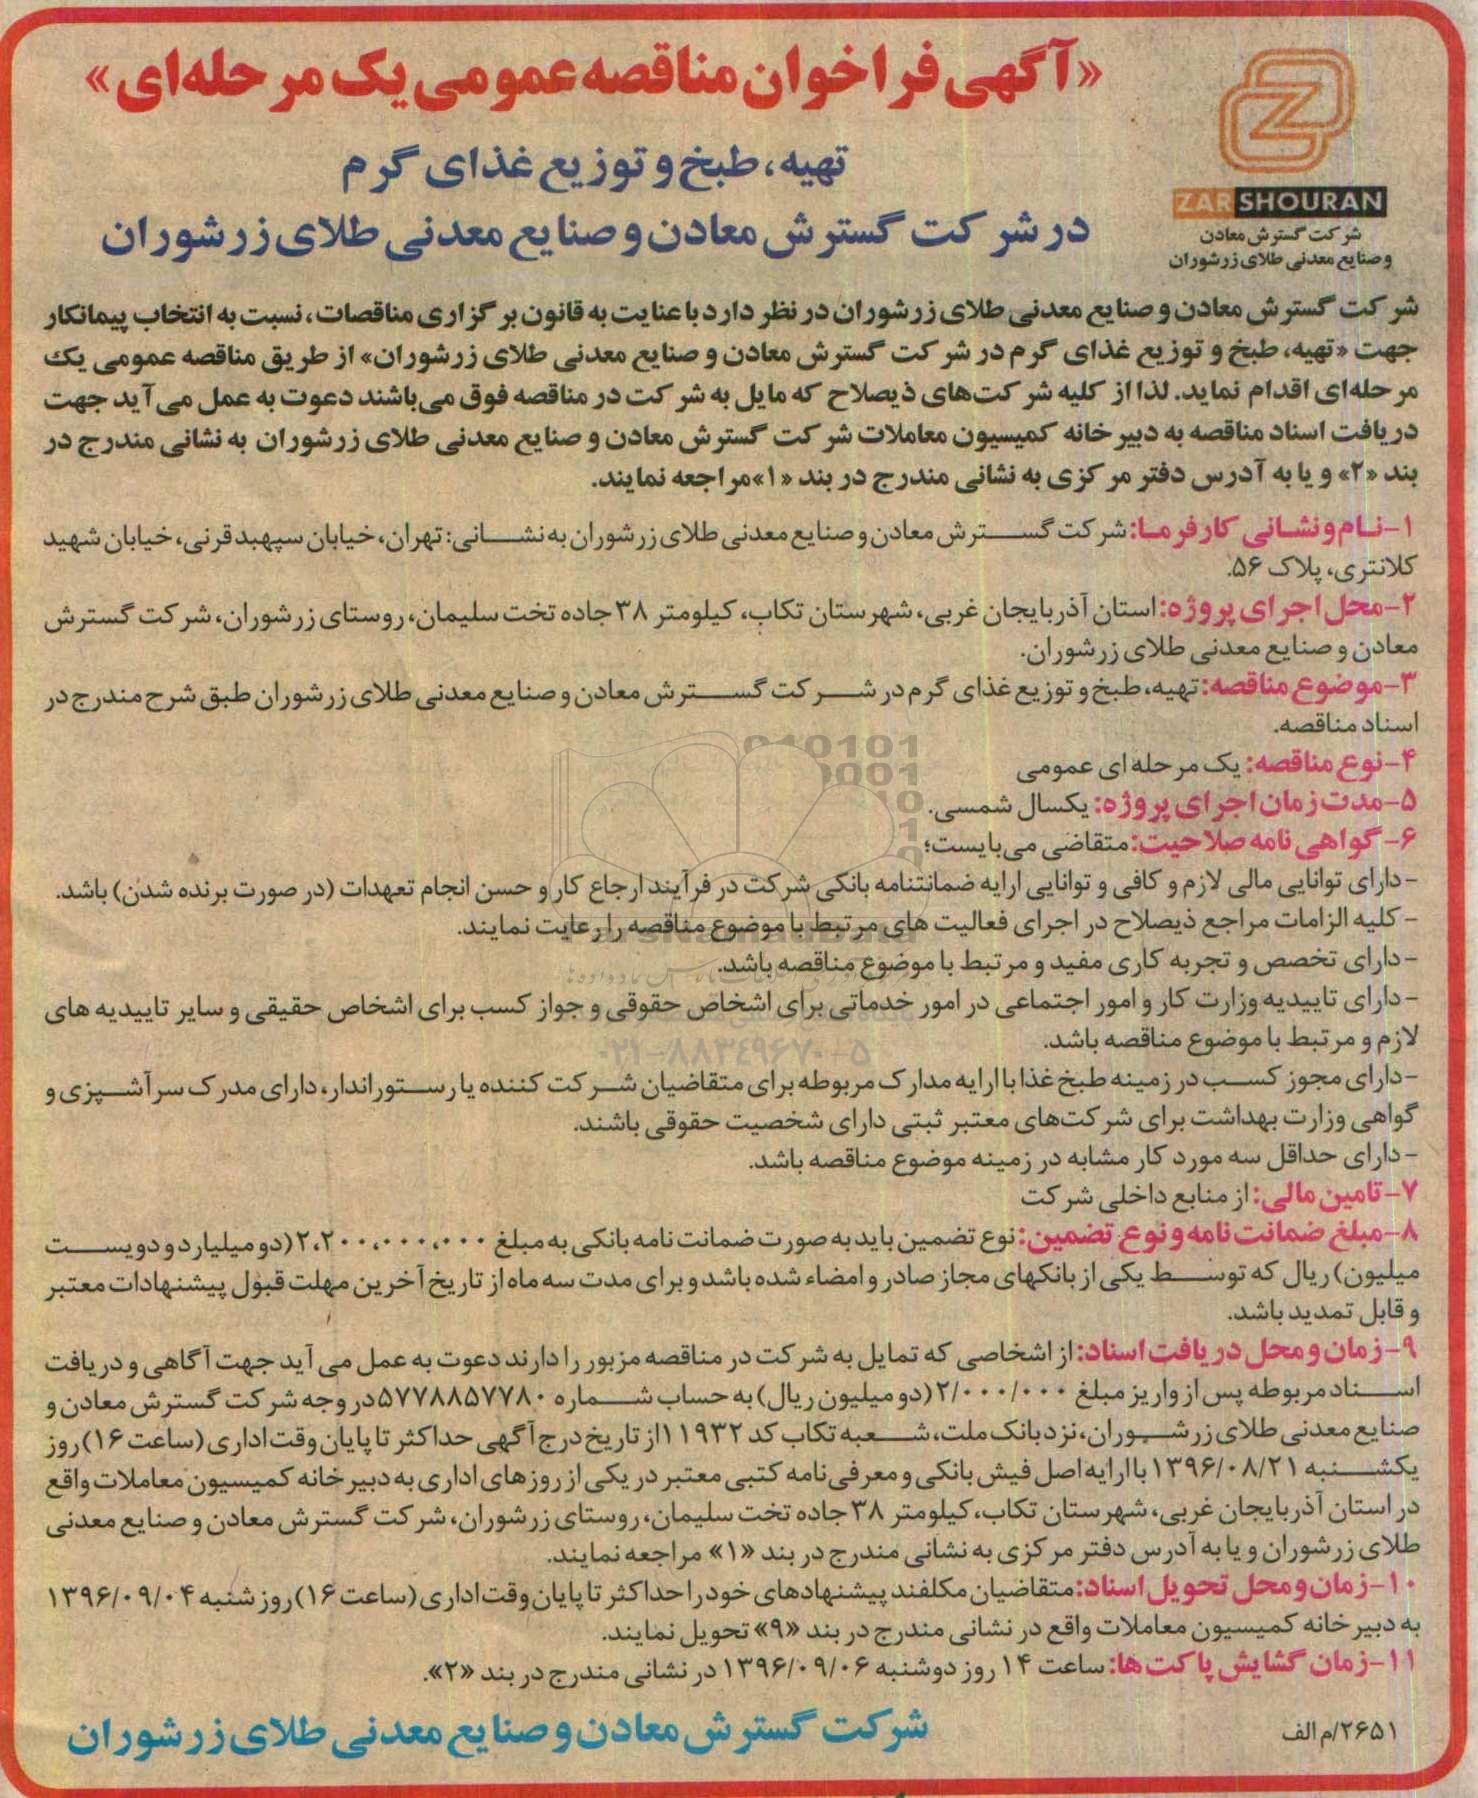 «آگهی فراخوان مناقصه عمومی یک مرحله‌ای»
تهیه، طبخ و توزیع غذای گرم
در شرکت گسترش معادن و صنایع معدنی طلای زرشوران
ZARSHOURAN
شرکت گسترش معادن
و صنایع معدنی طلای زرشوران
شرکت گسترش معادن و صنایع معدنی طلای زرشوران در نظر دارد با عنایت به قانون برگزاری مناقصات، نسبت به انتخاب پیمانکار
جهت «تهیه، طبخ و توزیع غذای گرم در شرکت گسترش معادن و صنایع معدنی طلای زرشوران» از طریق مناقصه عمومی یک
مرحله‌ای اقدام نماید. لذا از کلیه شرکت‌های ذیصلاح که مایل به شرکت در مناقصه فوق می‌باشند دعوت به عمل می‌آید جهت
دریافت اسناد مناقصه به دبیرخانه کمیسیون معاملات شرکت گسترش معادن و صنایع معدنی طلای زرشوران به نشانی مندرج در
بند «۲» و یا به آدرس دفتر مرکزی به نشانی مندرج در بند «۱»مراجعه نمایند.
۱-نام و نشانی کارفرما: شرکت گسترش معادن و صنایع معدنی طلای زرشوران به نشانی: تهران، خیابان سپهبد قرنی، خیابان شهید
کلانتری، پلاک ۵۶.
۲-محل اجرای پروژه: استان آذربایجان غربی، شهرستان تکاب، کیلومتر ۳۸ جاده تخت سلیمان، روستای زرشوران، شرکت گسترش
معادن و صنایع معدنی طلای زرشوران.
۳-موضوع مناقصه: تهیه، طبخ و توزیع غذای گرم در شرکت گسترش معادن و صنایع معدنی طلای زرشوران طبق شرح مندرج در
اسناد مناقصه.
۴-نوع مناقصه: یک مرحله‌ای عمومی
۵-مدت زمان اجرای پروژه: یکسال شمسی.
۶- گواهی نامه صلاحیت: متقاضی می‌بایست؛
- دارای توانایی مالی لازم و کافی و توانایی ارایه ضمانتنامه بانکی شرکت در فرآیند ارجاع کار و حسن انجام تعهدات (در صورت برنده شدن) باشد.
- کلیه الزامات مراجع ذیصلاح در اجرای فعالیت های مرتبط با موضوع مناقصه را رعایت نمایند.
- دارای تخصص و تجربه کاری مفید و مرتبط با موضوع مناقصه باشد.
- دارای تاییدیه وزارت کار و امور اجتماعی در امور خدماتی برای اشخاص حقوقی و جواز کسب برای اشخاص حقیقی و سایر تاییدیه های
لازم و مرتبط با موضوع مناقصه باشد.
۰۲۱-۸۸۳۴۹۶۷۰-۵
- دارای مجوز کسب در زمینه طبخ غذا با ارایه مدارک مربوطه برای متقاضیان شرکت کننده یا رستوراندار، دارای مدرک سرآشپزی و
گواهی وزارت بهداشت برای شرکت‌های معتبر ثبتی دارای شخصیت حقوقی باشند.
- دارای حداقل سه مورد کار مشابه در زمینه موضوع مناقصه باشد.
۷- تامین مالی: از منابع داخلی شرکت
۸-مبلغ ضمانت نامه و نوع تضمین: نوع تضمین باید به صورت ضمانت نامه بانکی به مبلغ ۲،۲۰۰،۰۰۰،۰۰۰ (دو میلیارد و دویست
میلیون) ریال که توسط یکی از بانکهای مجاز صادر و امضاء شده باشد و برای مدت سه ماه از تاریخ آخرین مهلت قبول پیشنهادات معتبر
و قابل تمدید باشد.
۹- زمان و محل دریافت اسناد: از اشخاصی که تمایل به شرکت در مناقصه مزبور را دارند دعوت به عمل می آید جهت آگاهی و دریافت
اسناد مربوطه پس از واریز مبلغ ۲/۰۰۰/۰۰۰ (دو میلیون ریال) به حساب شماره ۵۷۷۸۸۵۷۷۸۰ در وجه شرکت گسترش معادن و
صنایع معدنی طلای زرشوران، نزد بانک ملت، شعبه تکاب کد ۱۱۹۳۲ از تاریخ درج آگهی حداکثر تا پایان وقت اداری (ساعت ۱۶) روز
یکشنبه ۱۳۹۶/۰۸/۲۱ با ارایه اصل فیش بانکی و معرفی‌نامه کتبی معتبر در یکی از روزهای اداری به دبیرخانه کمیسیون معاملات واقع
در استان آذربایجان غربی، شهرستان تکاب، کیلومتر ۳۸ جاده تخت سلیمان، روستای زرشوران، شرکت گسترش معادن و صنایع معدنی
طلای زرشوران و یا به آدرس دفتر مرکزی به نشانی مندرج در بند «۱» مراجعه نمایند.
۱۰-زمان و محل تحویل اسناد: متقاضیان مکلفند پیشنهادهای خود را حداکثر تا پایان وقت اداری (ساعت ۱۶) روز شنبه ۱۳۹۶/۰۹/۰۴
به دبیرخانه کمیسیون معاملات واقع در نشانی مندرج در بند «۹» تحویل نمایند.
۱۱-زمان گشایش پاکت ها: ساعت ۱۴ روز دوشنبه ۱۳۹۶/۰۹/۰۶ در نشانی مندرج در بند «۲».
۲۶۵۱/م الف
شرکت گسترش معادن و صنایع معدنی طلای زرشوران